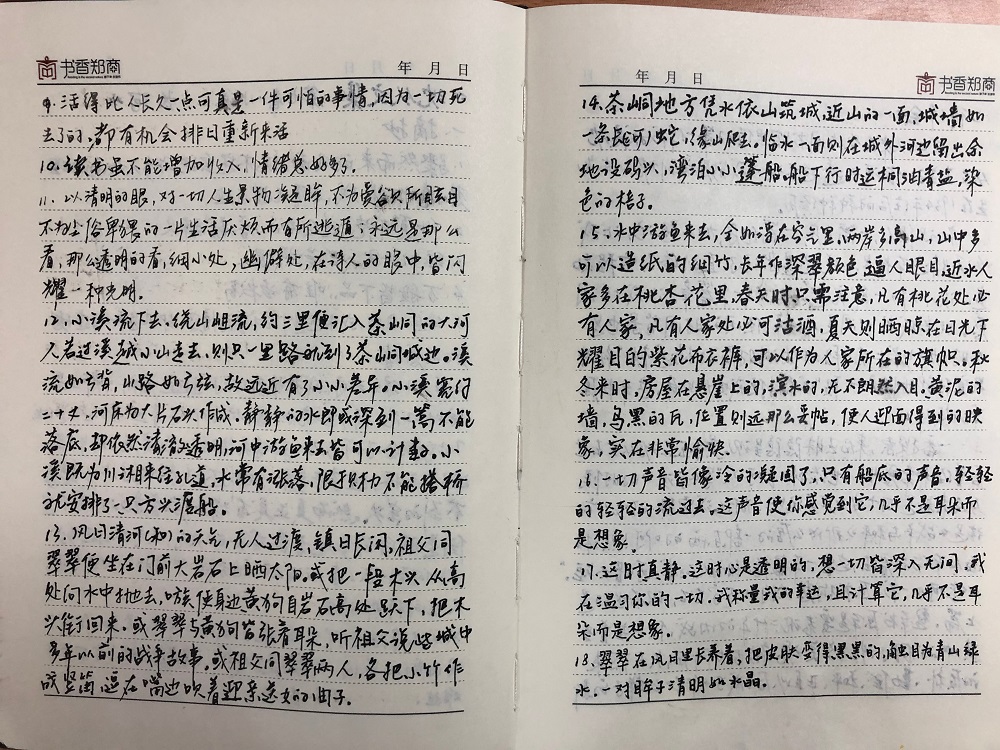 书香郑商
年 月 日
9. 活得比人长久一点可真是一件可怕的事情,因为一切死
去了的,都有机会排日重新来活
10. 读书虽不能增加收入,情绪总好多了.
11. 以清明的眼,对一切人生景物凝眸,不为爱欲所眩目
不为世俗卑猥的一片生活厌烦而有所逃遁;永远是那么
看,那么透明的看,细小处,幽僻处,在诗人的眼中,皆闪
耀一种光明.
12. 小溪流下去,绕山岨流,约三里便汇入茶峒的大河
人若过溪越小山走去,则只一里路就到了茶峒城边。溪
流如弓背,山路如弓弦,故远近有了小小差异。小溪宽约
二十丈,河床为大片石头作成。静静的水即或深到一篙不能
落底,却依然清澈透明,河中游鱼来去皆可以计数。小
溪既为川湘来往孔道,水常有涨落,限于财力不能搭桥
就安排了一只方头渡船。
13. 风日清河(和)的天气,无人过渡,镇日长闲,祖父同
翠翠便坐在门前大岩石上晒太阳。或把一段木头从高
处向水中抛去,嗾使身边黄狗自岩石高处跃下,把木
头衔回来.或翠翠与黄狗皆张着耳朵,听祖父说些城中
多年以前的战争故事。或祖父同翠翠两人,各把小竹作
成竖笛,逗在嘴边吹着迎亲送女的曲子。
年 月 日
书香郑商
14. 茶峒地方凭水依山筑城,近山的一面,城墙如
一条长(河)蛇,缘山爬去。临水一面则在城外河边留出余
地设码头,湾泊小小篷船。船下行时运桐油青盐,染
色的棓子。
15. 水中游鱼来去,全如浮在空气里,两岸多高山,山中多
可以造纸的细竹,长年作深翠颜色 逼人眼目,近水人
家多在桃杏花里,春天时只需注意,凡有桃花处必
有人家,凡有人家处必可沽酒,夏天则晒晾在日光下
耀目的紫花布衣裤,可以作为人家所在的旗帜。秋
冬来时,房屋在悬崖上的,滨水的,无不朗然入目。黄泥的
墙,乌黑的瓦,位置则远那么妥帖,使人迎面得到的映
象,实在非常愉快。
16. 一切声音皆像冷的凝固了,只有船底的声音,轻轻
的轻轻的流过去。这声音使你感觉到它,几乎不是耳朵而
是想象。
17. 这时真静。这时心是透明的,想一切皆深入无间,我
在温习你的一切.我称量我的幸运,且计算它,几乎不是耳
朵而是想象。
18. 翠翠在风日里长养着,把皮肤变得黑黑的,触目为青山绿
水,一对眸子清明如水晶。